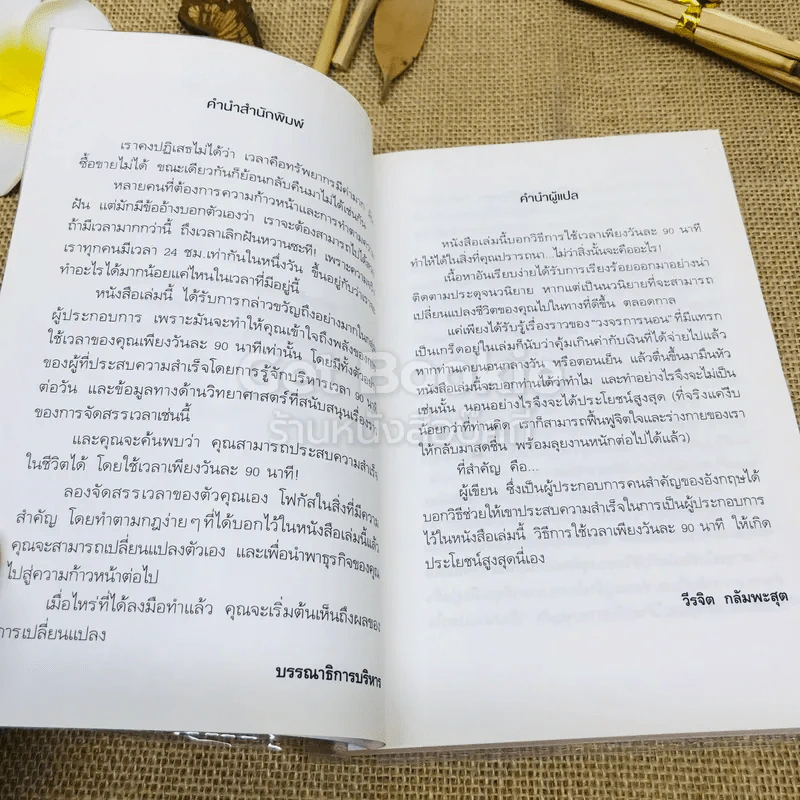 คำนำสำนักพิมพ์
เราคงปฏิเสธไม่ได้ว่า เวลาคือทรัพยากรมีค่ามาก
ซื้อขายไม่ได้ ขณะเดียวกันก็ย้อนกลับคืนมาไม่ได้เช่นกัน
หลายคนที่ต้องการความก้าวหน้าและการทำตามความ
ฝัน แต่มักมีข้ออ้างบอกตัวเองว่า เราจะต้องสามารถไปได้
ถ้ามีเวลามากกว่านี้ ถึงเวลาเลิกฝันหวานซะที! เพราะความ
เราทุกคนมีเวลา 24 ชม.เท่ากันในหนึ่งวัน ขึ้นอยู่กับว่าเราจะ
ทำอะไรได้มากน้อยแค่ไหนในเวลาที่มีอยู่นี้
หนังสือเล่มนี้ ได้รับการกล่าวขวัญถึงอย่างมากใน
ผู้ประกอบการ เพราะมันจะทำให้คุณเข้าใจถึงพลังของ
ใช้เวลาของคุณเพียงวันละ 90 นาทีเท่านั้น โดยมีทั้งตัวอย่าง
ของผู้ที่ประสบความสำเร็จโดยการรู้จักบริหารเวลา 90 นาที
ต่อวัน และข้อมูลทางด้านวิทยาศาสตร์ที่สนับสนุนเรื่อง
ของการจัดสรรเวลาเช่นนี้
และคุณจะค้นพบว่า คุณสามารถประสบความสำเร็จ
ในชีวิตได้ โดยใช้เวลาเพียงวันละ 90 นาที!
ลองจัดสรรเวลาของตัวคุณเอง โฟกัสในสิ่งที่มีความ
สำคัญ โดยทำตามกฎง่ายๆที่ได้บอกไว้ในหนังสือเล่มนี้แล้ว
คุณจะสามารถเปลี่ยนแปลงตัวเอง และเพื่อนำพาธุรกิจของคุณ
ไปสู่ความก้าวหน้าต่อไป
เมื่อไหร่ที่ได้ลงมือทำแล้ว คุณจะเริ่มต้นเห็นถึงผลของ
การเปลี่ยนแปลง
บรรณาธิการบริหาร
คำนำผู้แปล
หนังสือเล่มนี้บอกวิธีการใช้เวลาเพียงวันละ 90 นาที
ทำให้ได้ในสิ่งที่คุณปรารถนา...ไม่ว่าสิ่งนั้นจะคืออะไร!
เนื้อหาอันเรียบง่ายได้รับการเรียงร้อยออกมาอย่างน่า
ติดตามประดุจนวนิยาย หากแต่เป็นนวนิยายที่จะสามารถ
เปลี่ยนแปลงชีวิตของคุณไปในทางที่ดีขึ้น ตลอดกาล
แค่เพียงได้รับรู้เรื่องราวของ "วงจรการนอน" ที่มีแทรก
เป็นเกร็ดอยู่ในเล่มก็นับว่าคุ้มเกินค่ากับเงินที่ได้จ่ายไปแล้ว
หากท่านเคยนอนกลางวัน หรือตอนเย็น แล้วตื่นขึ้นมามึนหัว
หนังสือเล่มนี้จะบอกท่านได้ว่าทำไม และทำอย่างไรจึงจะไม่เป็น
เช่นนั้น นอนอย่างไรจึงจะได้ประโยชน์สูงสุด (ที่จริงแค่งีบ
น้อยกว่าที่ท่านคิด เราก็สามารถฟื้นฟูจิตใจและร่างกายของเรา
ให้กลับมาสดชื่น พร้อมลุยงานหนักต่อไปได้แล้ว)
ที่สำคัญ คือ...
ผู้เขียน ซึ่งเป็นผู้ประกอบการคนสำคัญของอังกฤษได้
บอกวิธีช่วยให้เขาประสบความสำเร็จในการเป็นผู้ประกอบการ
ไว้ในหนังสือเล่มนี้ วิธีการใช้เวลาเพียงวันละ 90 นาที ให้เกิด
ประโยชน์สูงสุดนี่เอง
วีรจิต กลัมพะสุต
Get Bookie
ร้านหนังสือบุ๊กกี้